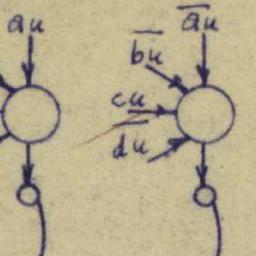 au
a̅u̅
b̅u̅
cu
d̅u̅